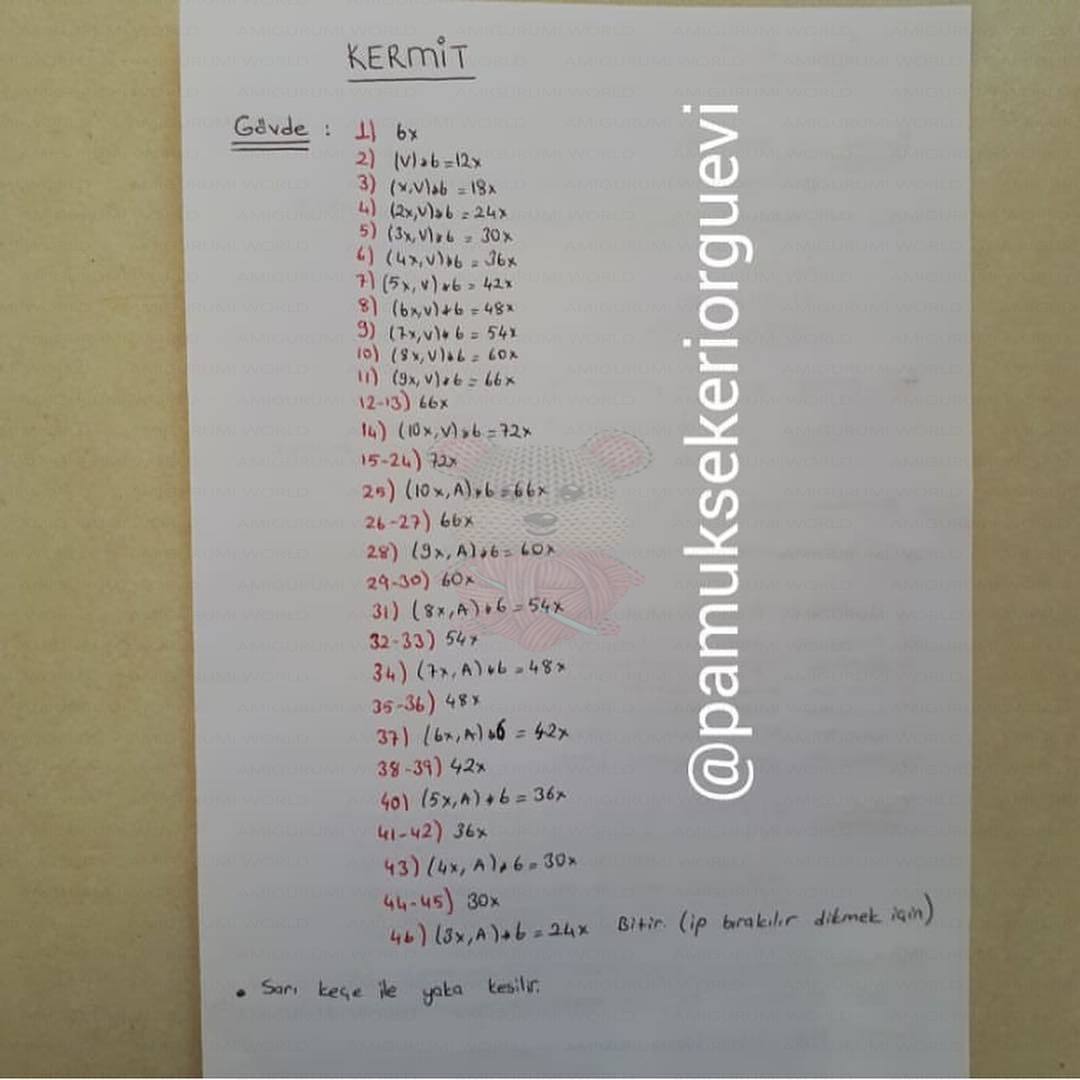 KERMİT
Gövde : 1) 6x
2) (V)*6=12x
3) (x,V)*6 = 18x
4) (2x,V)*6 = 24x
5) (3x,V)*6 = 30x
6) (4x,V)*6 = 36x
7) (5x,V)*6 = 42x
8) (6x,V)*6 = 48x
9) (7x,V)*6 = 54x
10) (8x,V)*6 = 60x
11) (9x,V)*6 = 66x
12-13) 66x
14) (10x,V)*6 = 72x
15-24) 72x
25) (10x,A)*6 = 66x
26-27) 66x
28) (9x,A)*6 = 60x
29-30) 60x
31) (8x,A)*6 = 54x
32-33) 54x
34) (7x,A)*6 = 48x
35-36) 48x
37) (6x,A)*6 = 42x
38-39) 42x
40) (5x,A)*6 = 36x
41-42) 36x
43) (4x,A)*6 = 30x
44-45) 30x
46) (3x,A)*6 = 24x Bitir. (ip bırakılır dikmek için)
• Sarı keçe ile yaka kesilir.
@pamuksekeriorguevi
AMIGURUMI WORLD